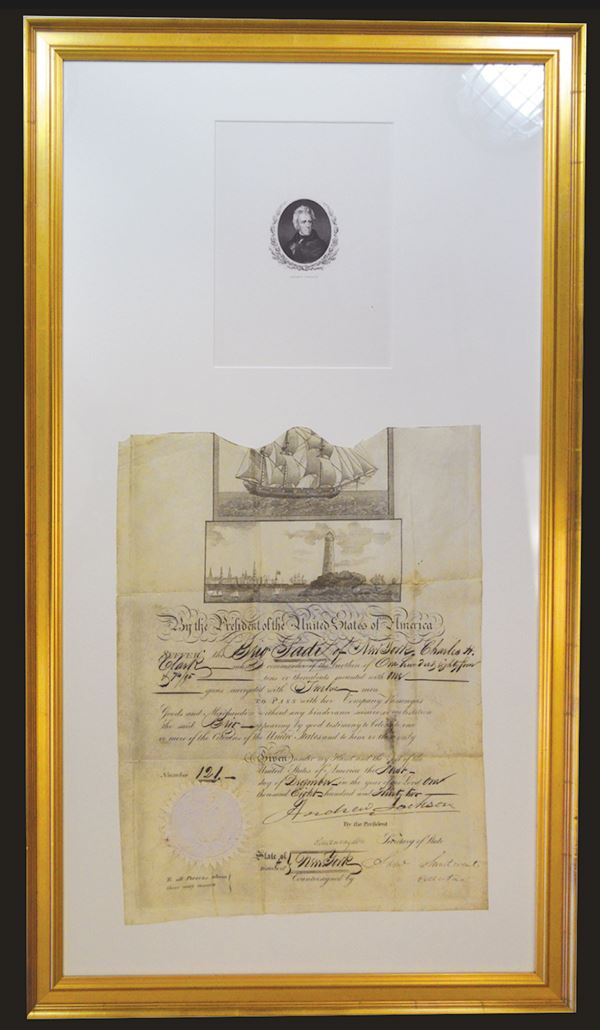 By the President of the United States of America
SUFFER the Brig of New York, Charles H.
Clark master or commander of the burthen of One hundred eighty four
& 79/95 tons or thereabouts mounted with no
guns, navigated with Twelve men
TO PASS with her Company Passengers
Goods and Merchandize without any hinderance seisure or molestation
the said Brig appearing by good testimony to belong to one
or more of the Citizens of the United States and to him or them only
Given under my Hand and the Seal of the
United States of America the
day of December in the year of our Lord One
thousand Eight hundred and Thirty two
Number 121.
Andrew Jackson
By the President
Secretary of State
State of
New York
Countersigned by
Collector
To all Persons whom
these may concern